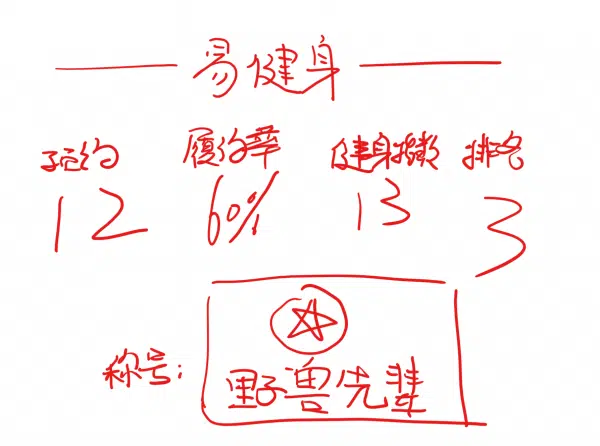 易健身
预约 履约率 健身指数 排名
12 60% 13 3
称号:
野兽先辈